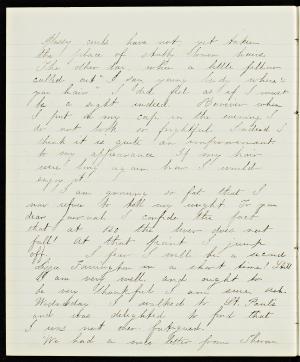 Glossy curls have not yet taken
the place of stubby brown hairs.
The other day when a little fellow
called out "I say young lady where's
your hair" I did feel as if I must
be a sight indeed. However when
I put on my cap in the evening I
do not look so frightful. Indeed I
think it is quite an improvement
to my appearance. If my hair
were long again how I would
enjoy it.
I am growing so fat that I
now refuse to tell my weight. To you
dear journal I confide the fact
that at 130 the lever does not
fall! At that point I jump
off. I fear I will be a second
Farrington in a short time! Still
I am very well and ought to
be very thankful I am sure.
Wednesday I walked to St. Pauls
and was delighted to find that
I was not over fatigued!
We had a nice letter from